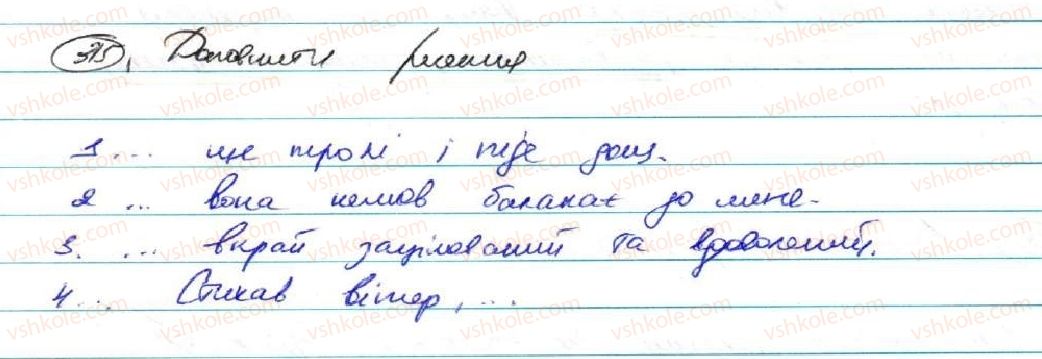 375. Доповнити речення
1 ... ще трохи і піде дощ.
2 ... вона немов балакає до мене.
3. ... вкрай зацілований та вдоволений.
4 ... Стихав вітер, ...